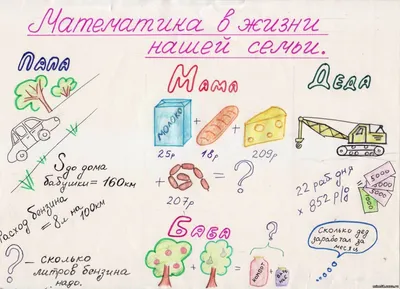 Математика в жизни
нашей семьи.
Папа
Мама
Деда
МОЛОКО
25р
+
18р
+
209р
+
207р
=
?
S до дома
бабушки = 160км
Расход бензина
= 8л на 100км
? – сколько
литров бензина
надо.
22 раб. дня
× 852 р/д
5000
5000
5000
Сколько дед
заработал за
Баба
+
=
+
компот